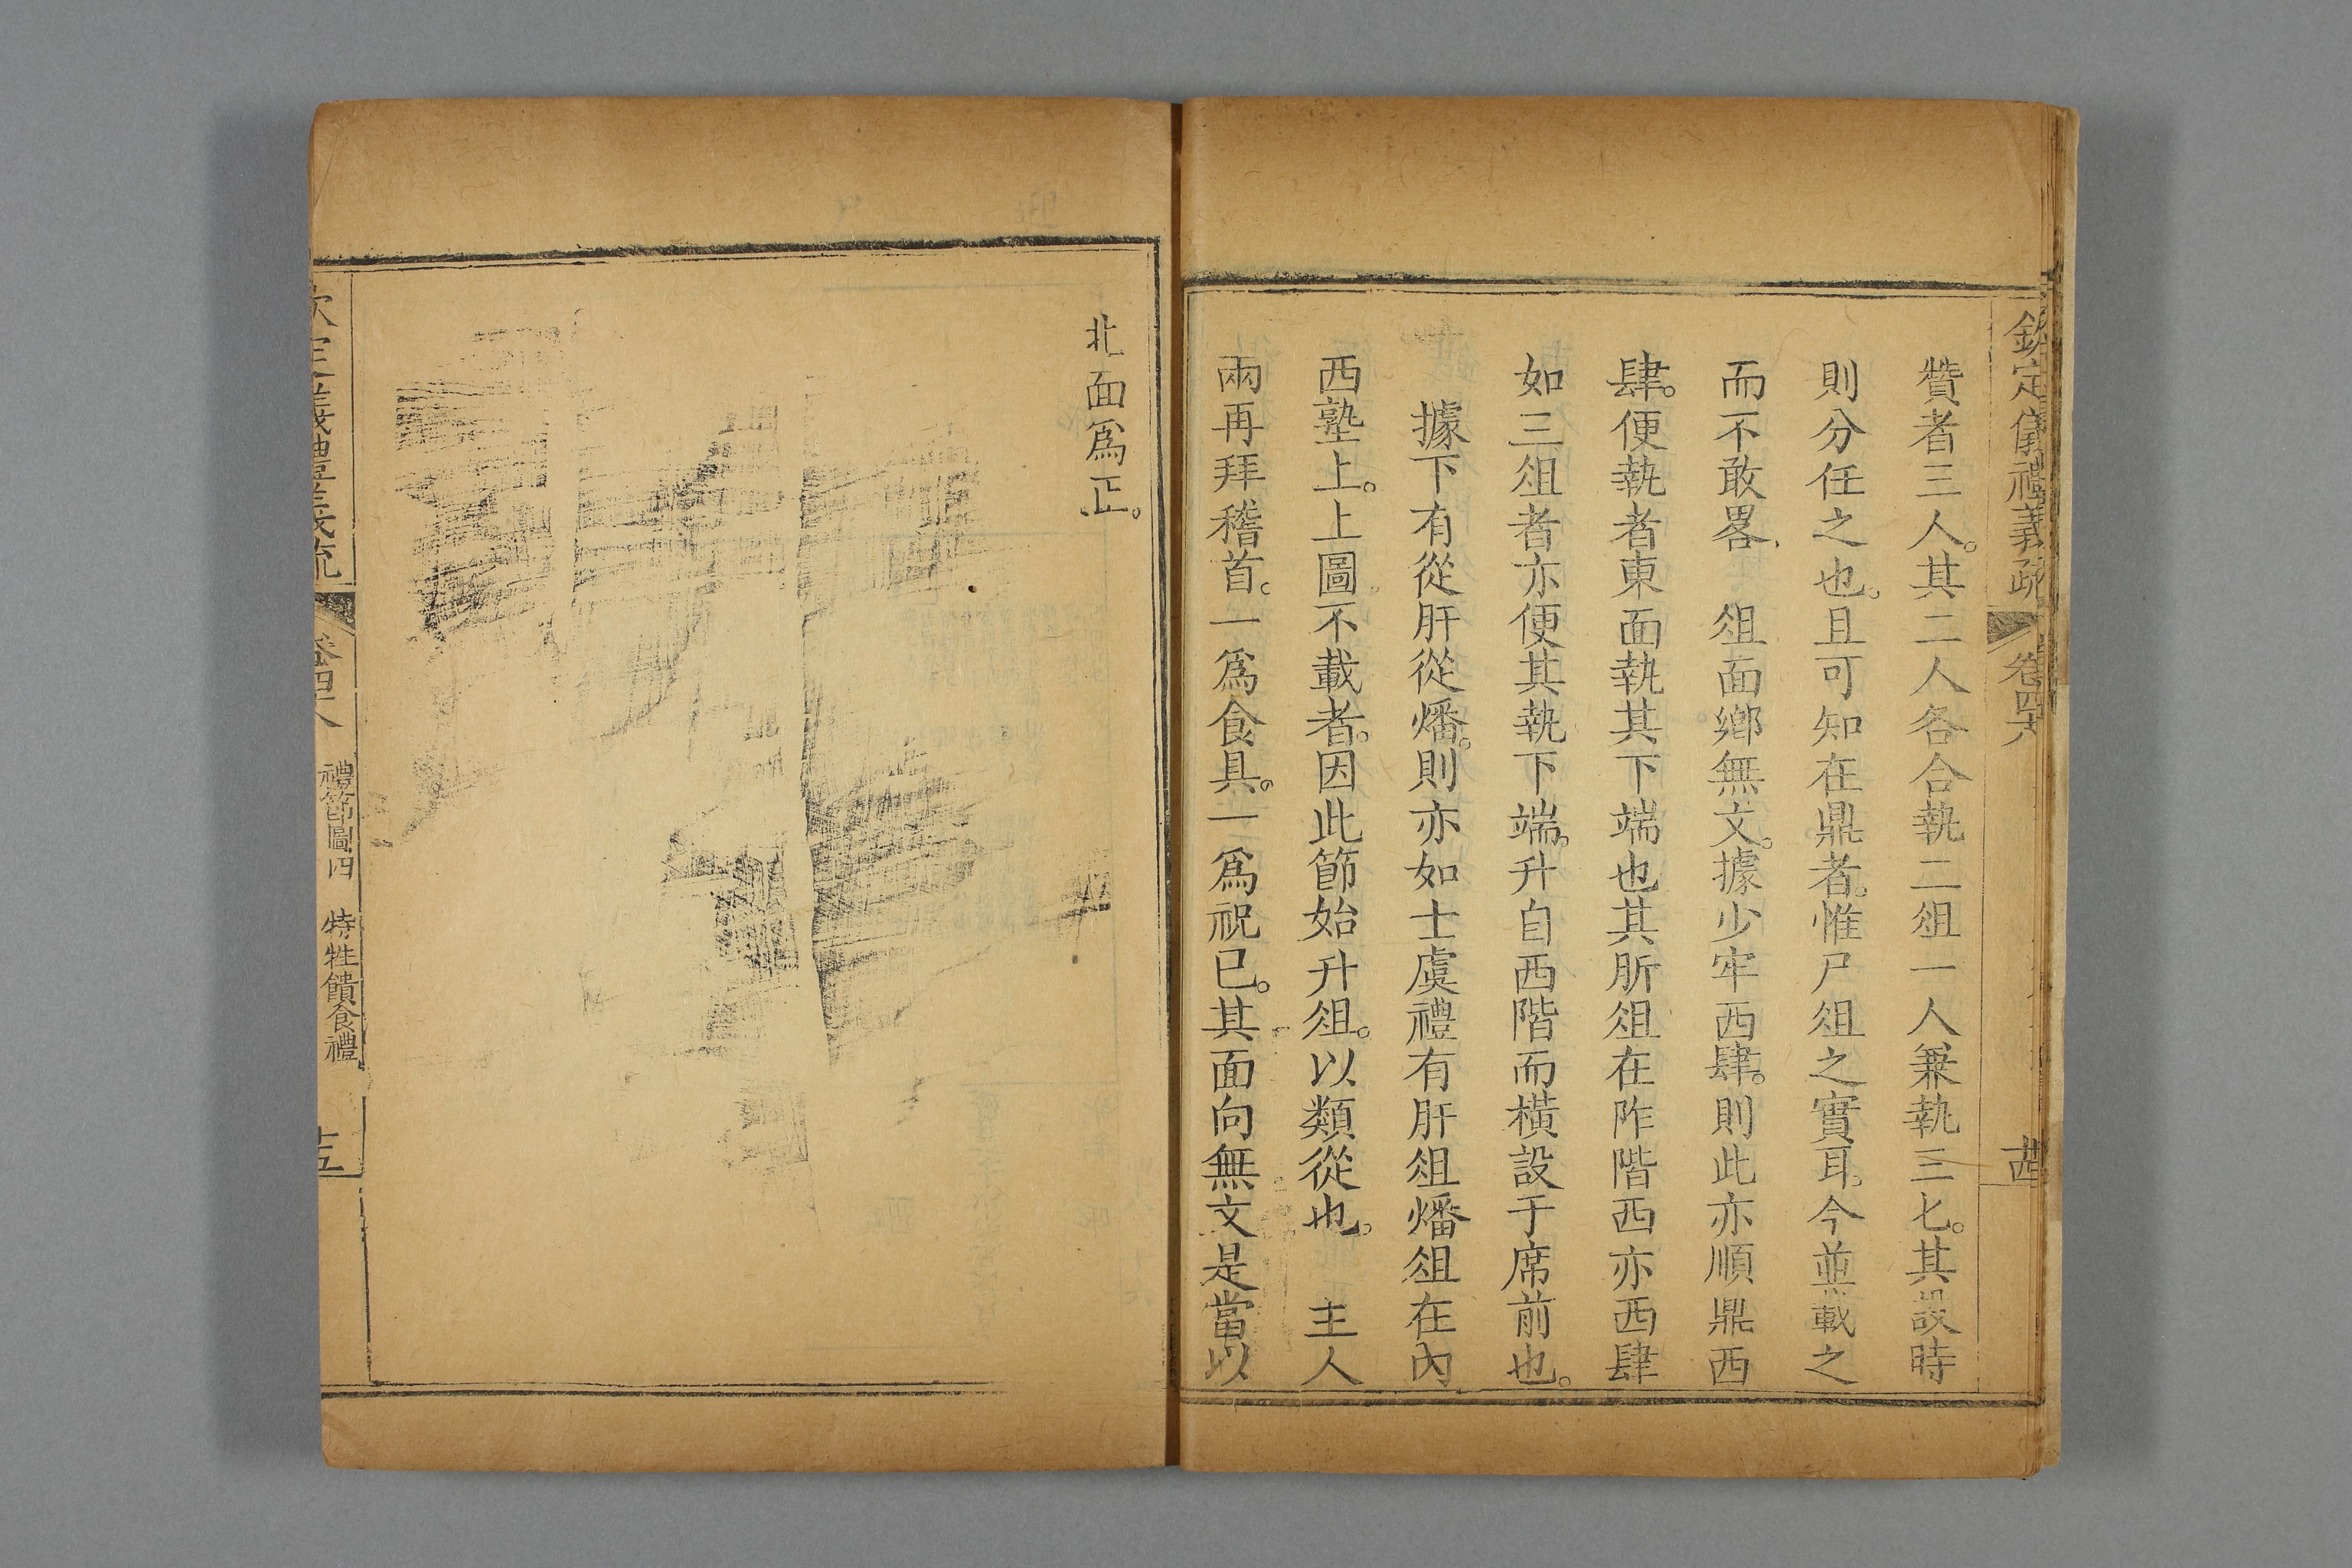 欽定儀禮義疏 卷四十八
贊者三人。其二人各合執二俎一人兼執三匕。其設時
則分任之也。且可知在鼎者。惟尸俎之實耳。今並載之
而不敢畧、 俎面鄉無文。據少牢西肆。則此亦順鼎西
肆。便執者東面執其下端也其肵俎在阼階西亦西肆
如三俎者亦便其執下端。升自西階而橫設于席前也。
據下有從肝從燔。則亦如士虞禮有肝俎燔俎在內
西塾上。上圖不載者。因此節始升俎。以類從也。 主人
兩再拜稽首。一爲食具。一爲祝已。其面向無文是當以
北面爲正。
欽定儀禮義疏 卷四十八 禮節圖四 特牲饋食禮 十五